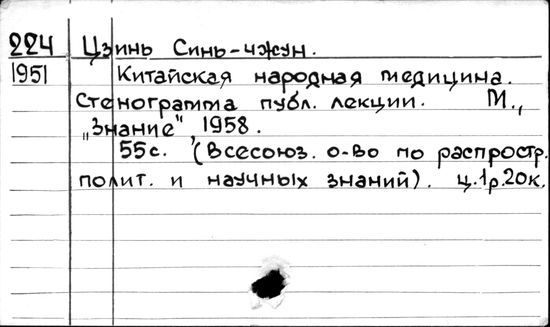 224 Цзинь Синь-чжун.
1951 Китайская народная медицина.
Стенограмма публ. лекции. М.,
„Знание", 1958.
55с. (Всесоюз. о-во по распростр.
полит. и научных знаний). ц.1р.20к.